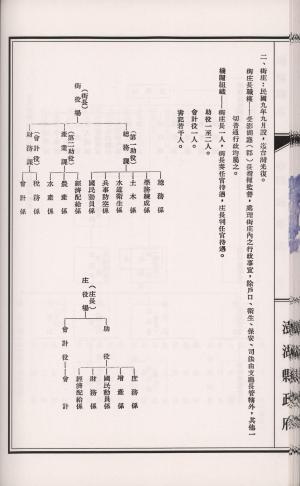 二、街庄:民國九年九月設,迄台灣光復。
街庄長職權——受澎湖廳(郡)長指揮監督,處理街庄內之行政事宜,除戶口、衛生、保安、司法由支廳長管轄外,其他一
切普通行政均屬之。
機關組織——街庄長一人,街長奏任官待遇,庄長判任官待遇。
助役一至二人。
會計役一人。
書記若干人。
街役場
(街長)
總務課
(第一助役)
庶務係
學務練成係
土木係
水道衛生係
兵事防空係
國民動員係
產業課
(第二助役)
經濟配給係
農產係
水產係
財務課
(會計役)
稅務係
會計係
庄役場
(庄長)
助役
庶務係
增產係
國民動員係
財務係
經濟配給係
會計役——會計
澎湖縣政府